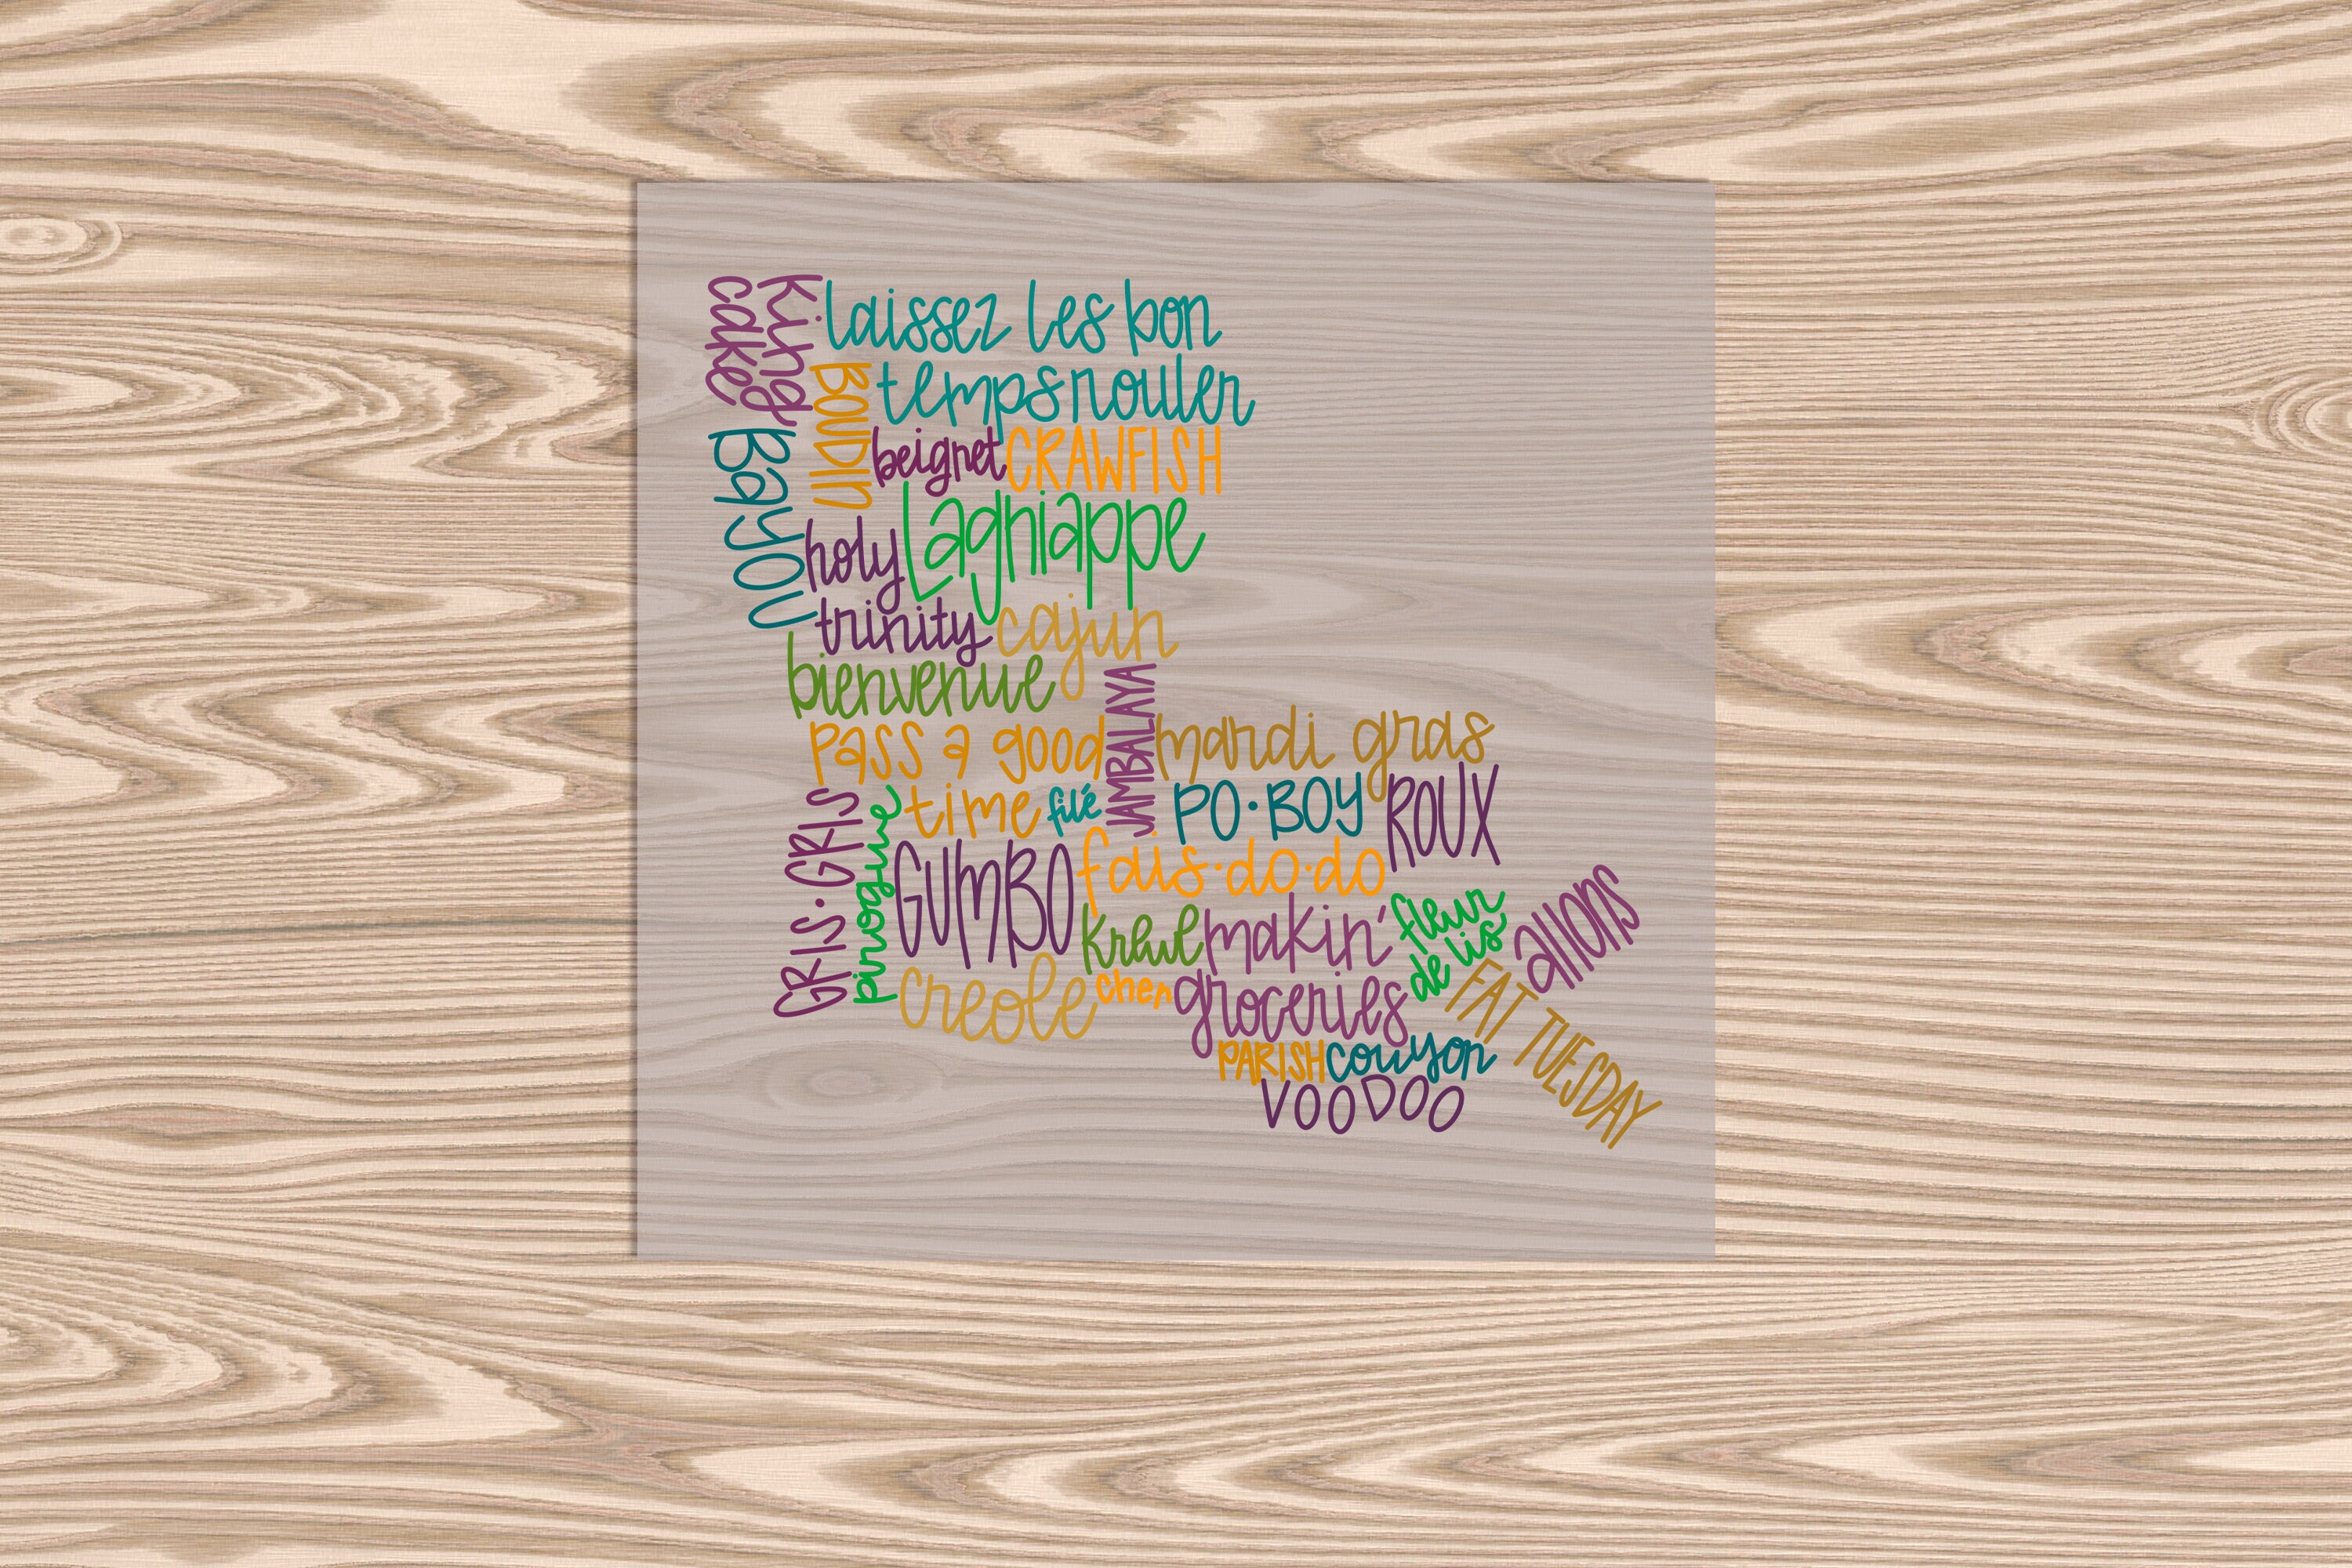 King
cake
laissez les bon
temps rouler
BOUDIN
beignet
CRAWFISH
Bayou
holy
trinity
Lagniappe
cajun
bienvenue
JAMBALAYA
pass a good
time
mardi gras
filé
PO·BOY
ROUX
GRIS·GRIS
pirogue
GUMBO
fais·do·do
krewe
makin'
groceries
fleur
de lis
allons
creole
cher
FAT TUESDAY
PARISH
couyon
VOODOO